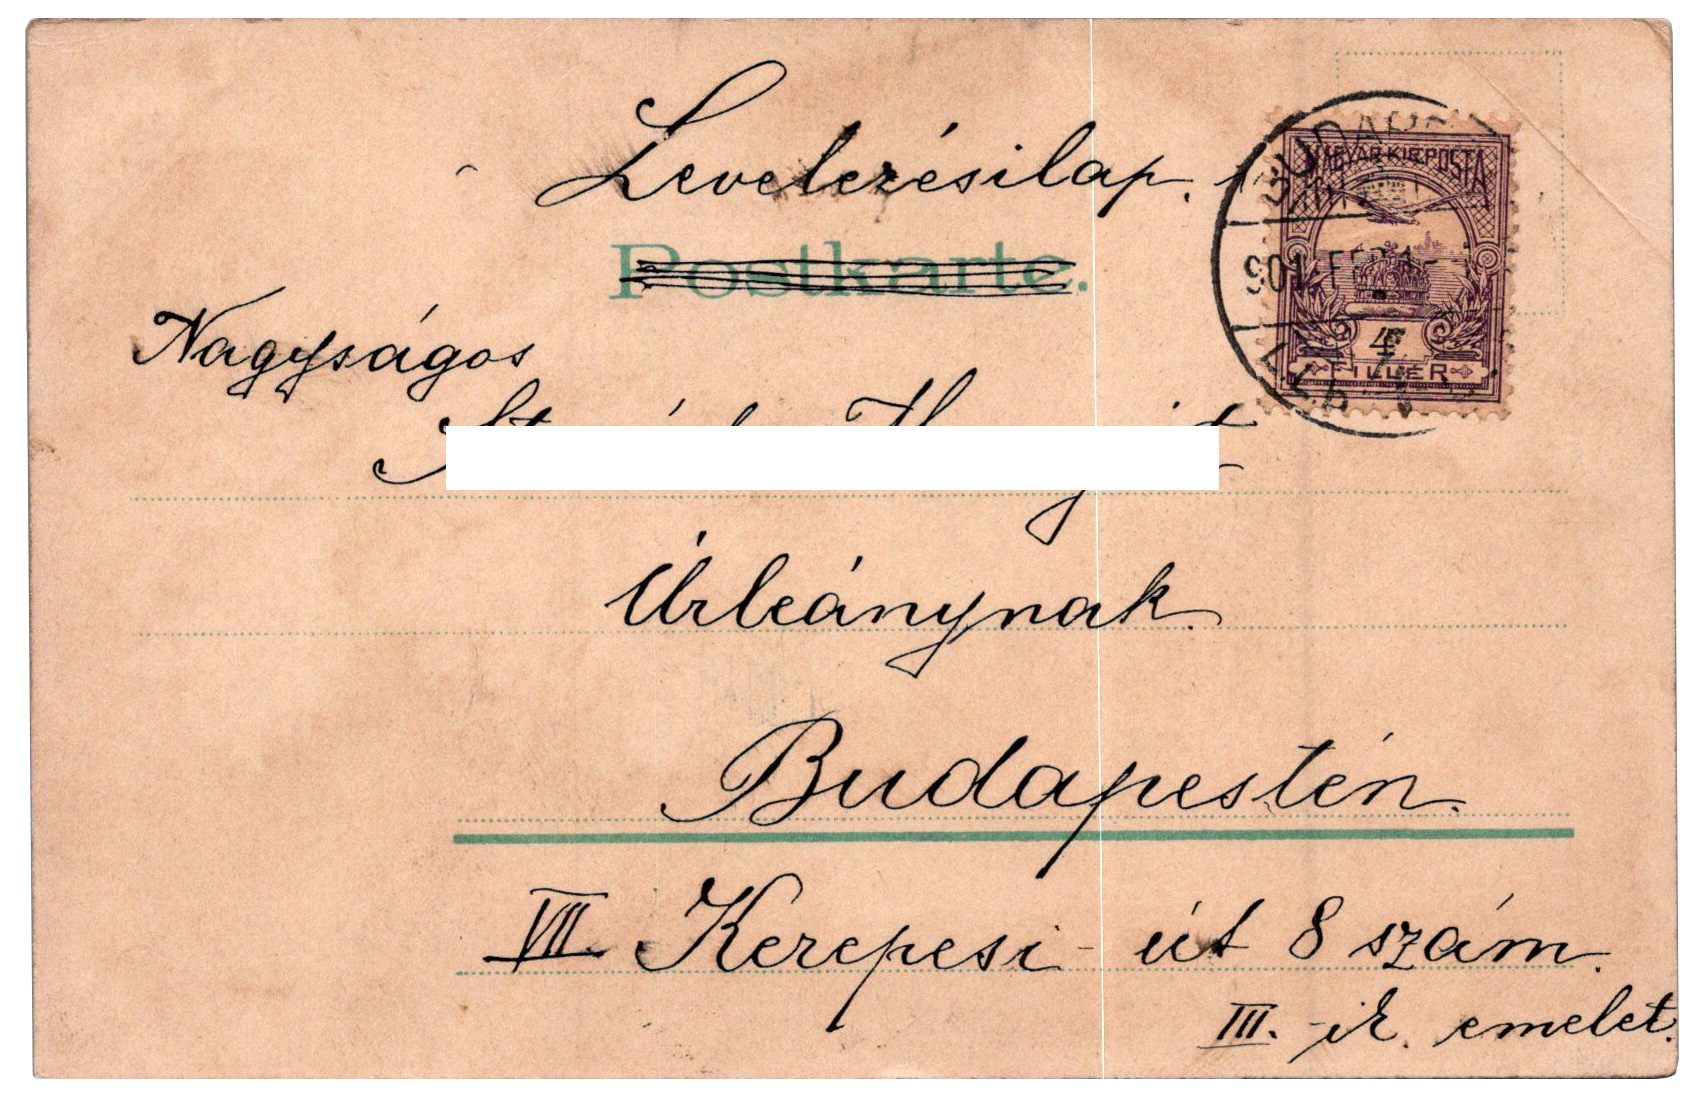 Levelezésilap.
Postkarte.
MAGYAR KIR. POSTA
901 FEB
4
FILLÉR
Nagyságos
Úrleánynak.
Budapestén.
VII. Kerepesi-út 8 szám.
III.-ik. emelet.